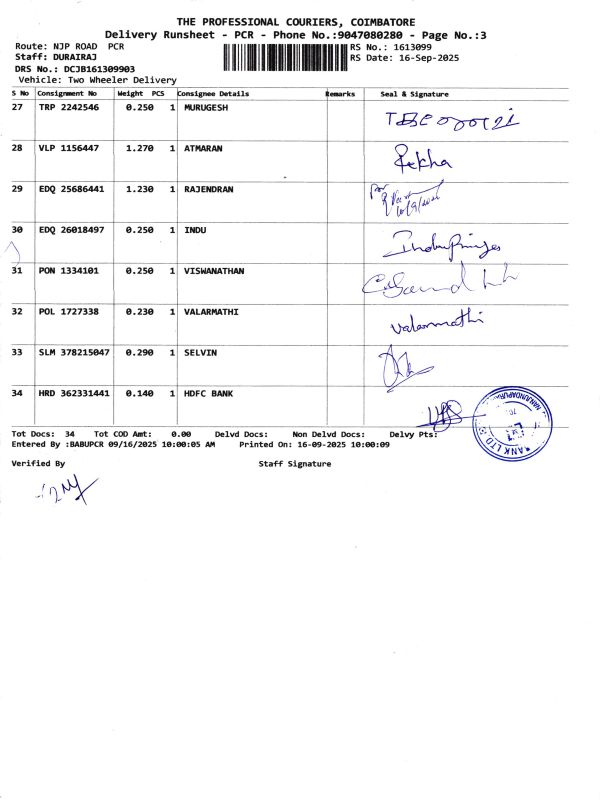 THE PROFESSIONAL COURIERS, COIMBATORE
Delivery Runsheet - PCR - Phone No.:9047080280 - Page No.:3
Route: NJP ROAD PCR RS No.: 1613099
Staff: DURAIRAJ RS Date: 16-Sep-2025
DRS No.: DCJB161309903
Vehicle: Two Wheeler Delivery
S No Consignment No Weight PCS Consignee Details Remarks Seal & Signature
27 TRP 2242546 0.250 1 MURUGESH
28 VLP 1156447 1.270 1 ATMARAN Rekha
29 EDQ 25686441 1.230 1 RAJENDRAN
30 EDQ 26018497 0.250 1 INDU
31 PON 1334101 0.250 1 VISWANATHAN
32 POL 1727338 0.230 1 VALARMATHI Valarmathi
33 SLM 378215047 0.290 1 SELVIN
34 HRD 362331441 0.140 1 HDFC BANK
Tot Docs: 34 Tot COD Amt: 0.00 Delvd Docs: Non Delvd Docs: Delvy Pts:
Entered By :BABUPCR 09/16/2025 10:00:05 AM Printed On: 16-09-2025 10:00:09
Verified By Staff Signature